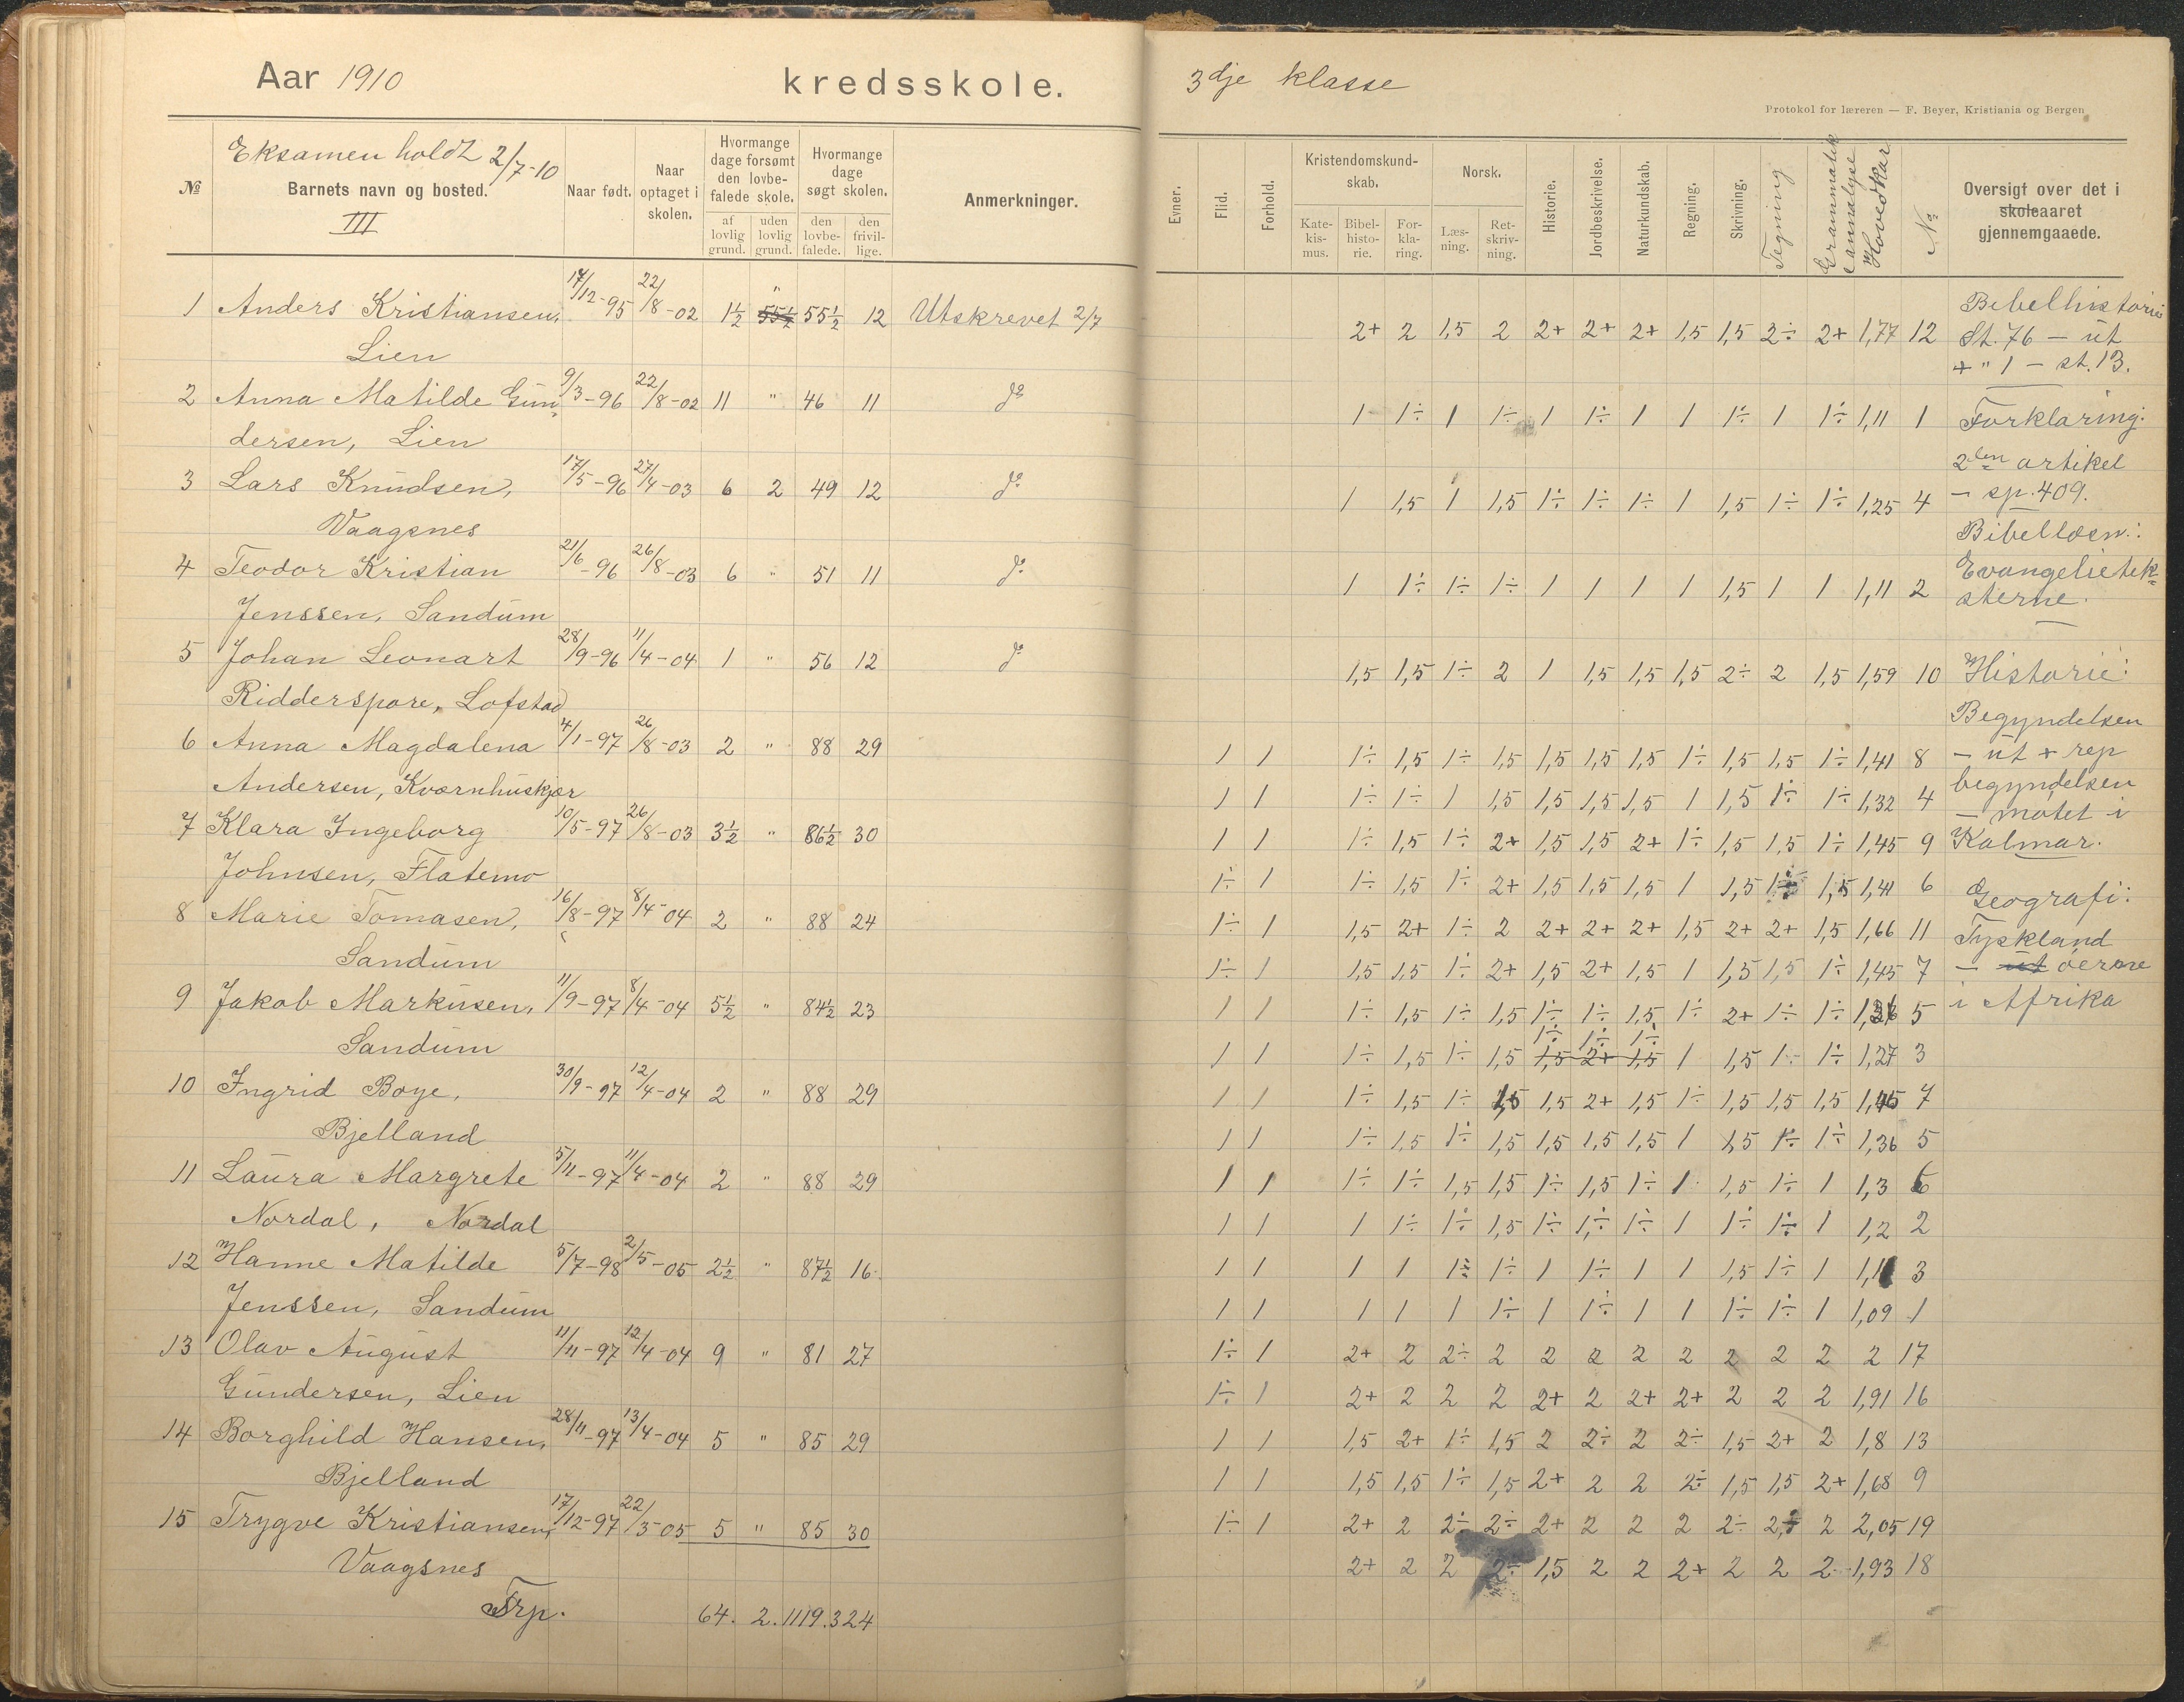 Aar 1910 kredsskole.
Eksamen holdt 2/7-10
№ Barnets navn og bosted. Naar født. Naar optaget i skolen. Hvormange dage forsømt den lovbefalede skole. Hvormange dage søgt skolen. Anmerkninger.
III
af lovlig grund. uden lovlig grund. den lovbefalede. den frivillige.
1 Anders Kristiansen, 17/12-95 22/8-02 1½ " 55½ 55½ 12 Utskrevet 2/7
Lien
2 Anna Matilde Gun- 9/3-96 22/8-02 11 " 46 11 do
dersen, Lien
3 Lars Knudsen, 17/5-96 27/4-03 6 2 49 12 do
Vaagsnes
4 Teodor Kristian 21/6-96 26/8-03 6 " 51 11 do
Jenssen, Sandum
5 Johan Leonart 28/9-96 11/4-04 1 " 56 12 do
Ridderspore, Lofstad
6 Anna Magdalena 4/1-97 26/8-03 2 " 88 29
Andersen, Kvornhuskjær
7 Klara Ingeborg 10/5-97 26/8-03 3½ " 86½ 30
Johnsen, Flatemo
8 Marie Tomasen, 16/8-97 8/4-04 2 " 88 24
Sandum
9 Jakob Markusen, 11/9-97 8/4-04 5½ " 84½ 23
Sandum
10 Ingrid Boye, 30/9-97 12/4-04 2 " 88 29
Bjelland
11 Laura Margrete 5/11-97 11/4-04 2 " 88 29
Nordal, Nordal
12 Hanne Matilde 5/7-98 2/5-05 2½ " 87½ 16
Jenssen, Sandum
13 Olav August 11/11-97 12/4-04 9 " 81 27
Gundersen, Lien
14 Borghild Hansen, 28/11-97 13/4-04 5 " 85 29
Bjelland
15 Trygve Kristiansen, 17/12-97 22/3-05 5 " 85 30
Vaagsnes
Trp. 64. 2. 1119. 324
3dje klasse
Protokol for læreren — F. Beyer, Kristiania og Bergen
Evner. Flid. Forhold. Kristendomskundskab. Norsk. Historie. Jordbeskrivelse. Naturkundskab. Regning. Skrivning. Tegning Grammatik &analyse Hovedkar № Oversigt over det i skoleaaret gjennemgaaede.
Katekismus. Bibelhistorie. Forklaring. Læsning. Retskrivning.
2+ 2 1,5 2 2+ 2+ 2+ 1,5 1,5 2÷ 2+ 1,77 12
1 1÷ 1 1÷ 1 1÷ 1 1 1÷ 1 1÷ 1,11 1
1 1,5 1 1,5 1÷ 1÷ 1÷ 1 1,5 1÷ 1÷ 1,25 4
1 1÷ 1÷ 1÷ 1 1 1 1 1,5 1 1 1,11 2
1,5 1,5 1÷ 2 1 1,5 1,5 1,5 2÷ 2 1,5 1,59 10
1 1 1÷ 1,5 1÷ 1,5 1,5 1,5 1,5 1÷ 1,5 1,5 1÷ 1,41 8
1 1 1÷ 1÷ 1 1,5 1,5 1,5 1,5 1 1,5 1÷ 1÷ 1,32 4
1 1 1÷ 1,5 1÷ 2+ 1,5 1,5 2+ 1÷ 1,5 1,5 1÷ 1,45 9
1÷ 1 1÷ 1,5 1÷ 2+ 1,5 1,5 1,5 1 1,5 1÷ 1,5 1,41 6
1÷ 1 1,5 2+ 1÷ 2 2+ 2+ 2+ 1,5 2+ 2+ 1,5 1,66 11
1÷ 1 1,5 1,5 1÷ 2+ 1,5 2+ 1,5 1 1,5 1,5 1÷ 1,45 7
1 1 1÷ 1,5 1÷ 1,5 1÷ 1÷ 1,5 1÷ 2+ 1÷ 1÷ 1,36 5
1÷ 1÷ 1÷
1 1 1÷ 1,5 1÷ 1,5 1,5 2+ 1,5 1 1,5 1÷ 1÷ 1,27 3
1 1 1÷ 1,5 1÷ 1,5 1,5 2+ 1,5 1÷ 1,5 1,5 1,5 1,45 7
1 1 1÷ 1,5 1÷ 1,5 1,5 1,5 1,5 1 1,5 1÷ 1÷ 1,36 5
1 1 1÷ 1÷ 1,5 1,5 1÷ 1,5 1÷ 1 1,5 1÷ 1 1,3 6
1 1 1 1÷ 1÷ 1,5 1÷ 1÷ 1÷ 1 1÷ 1÷ 1 1,2 2
1 1 1 1 1÷ 1÷ 1 1÷ 1 1 1,5 1÷ 1 1,11 3
1 1 1 1 1 1÷ 1 1÷ 1 1 1÷ 1÷ 1 1,09 1
1÷ 1 2+ 2 2÷ 2 2 2 2 2 2 2 2 2 17
1÷ 1 2+ 2 2 2 2+ 2 2+ 2+ 2 2 2 1,91 16
1 1 1,5 2+ 1÷ 1,5 2 2÷ 2 2÷ 1,5 2+ 2 1,8 13
1 1 1,5 1,5 1÷ 1,5 2+ 2 2 2÷ 1,5 1,5 2+ 1,68 9
1÷ 1 2+ 2 2÷ 2÷ 2+ 2 2 2 2÷ 2÷ 2 2,05 19
2+ 2 2 2÷ 1,5 2 2 2+ 2 2 2 1,93 18
Bibelhistorie
St. 76 – ut
+ " 1 – st. 13.
Forklaring:
2den artikel
– sp. 409.
Bibellæsn.:
Evangelietek-
sterne.
Historie:
Begyndelsen
– ut + rep
begyndelsen
– møtet i
Kalmar.
Geografi:
Tyskland
– ut øerne
i Afrika